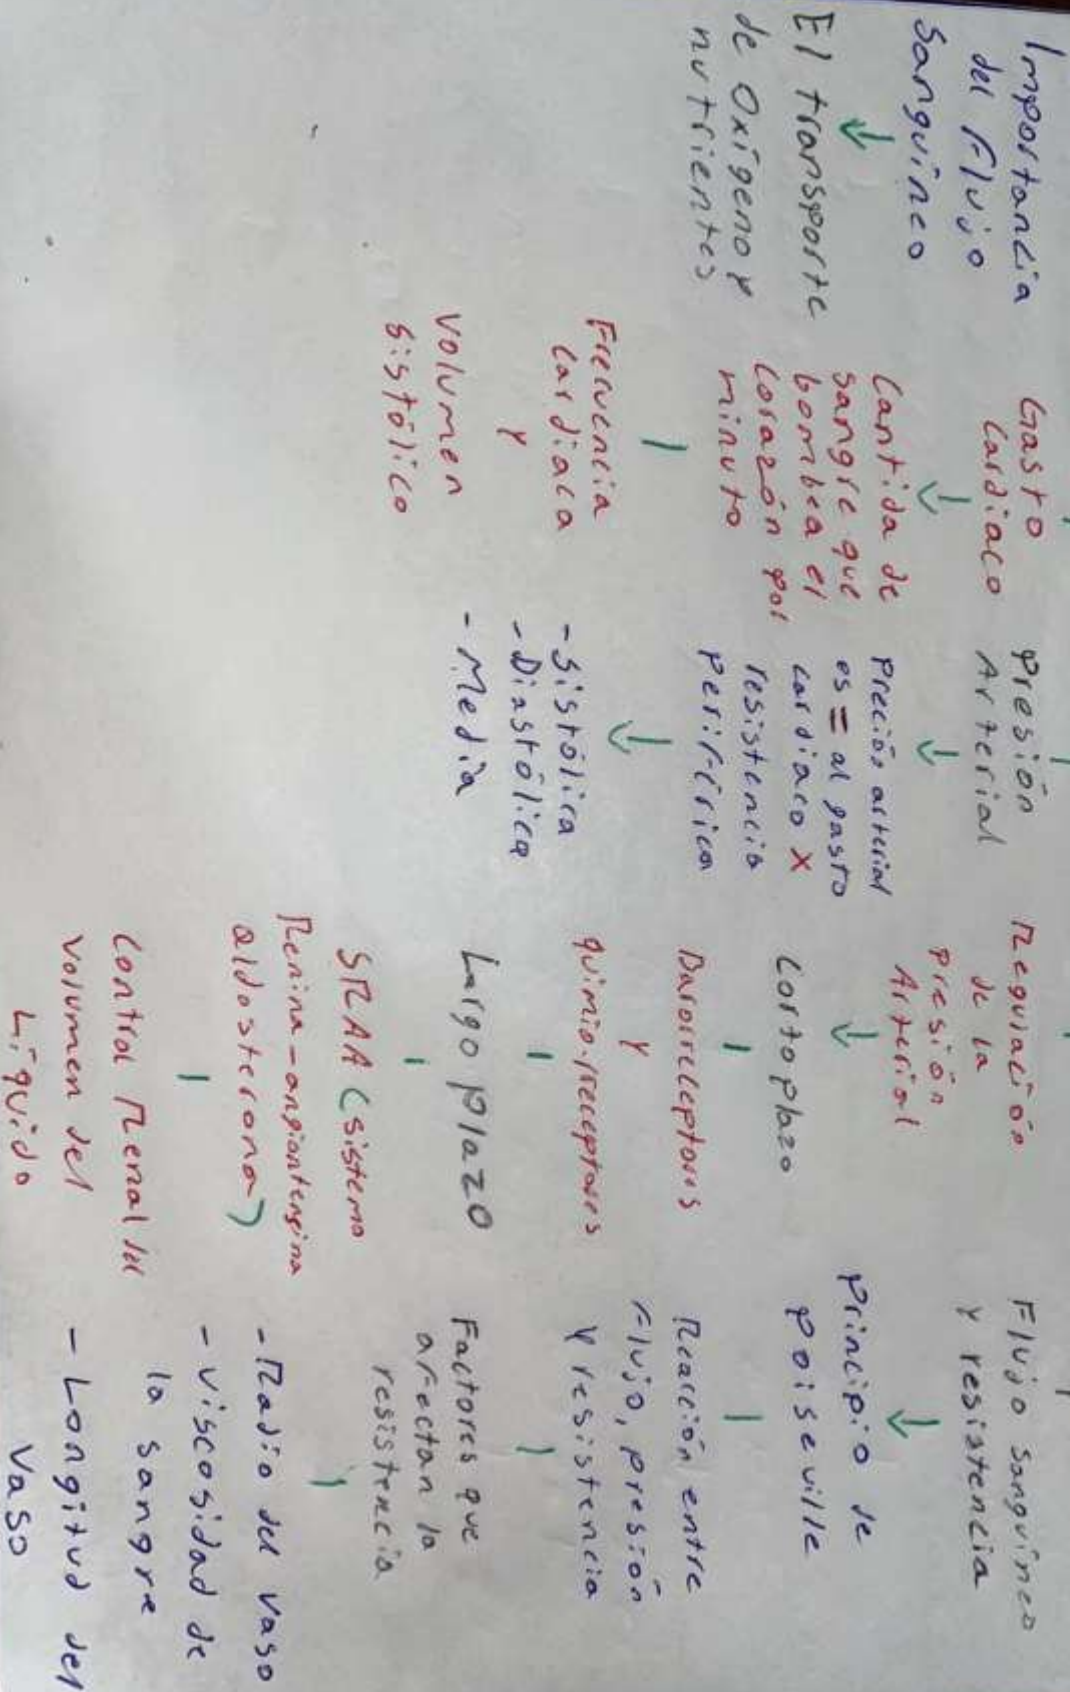 Importancia
del Flujo
Sanguíneo
El transporte
de Oxígeno y
nutrientes
Gasto
Cardiaco
Cantida de
sangre que
bombea el
corazón por
minuto
Frecuencia
Cardiaca
Y
Volumen
Sistólico
Presión
Arterial
Preción arterial
es = al gasto
cardiaco x
resistencia
periférica
- Sistólica
- Diastólica
- Media
Regulación
de la
presión
Arterial
Cortoplazo
Baroreceptores
Y
quimio-rreceptores
Largo plazo
SRAA (sistema
Renina-angiantengina
aldosterona)
Control Renal del
volumen del
Líquido
Flujo sanguíneo
y resistencia
Principio de
poiseville
Reacción entre
Flujo, presión
y resistencia
Factores que
afectan la
resistencia
- Radio del vaso
- viscosidad de
la sangre
- Longitud del
vaso